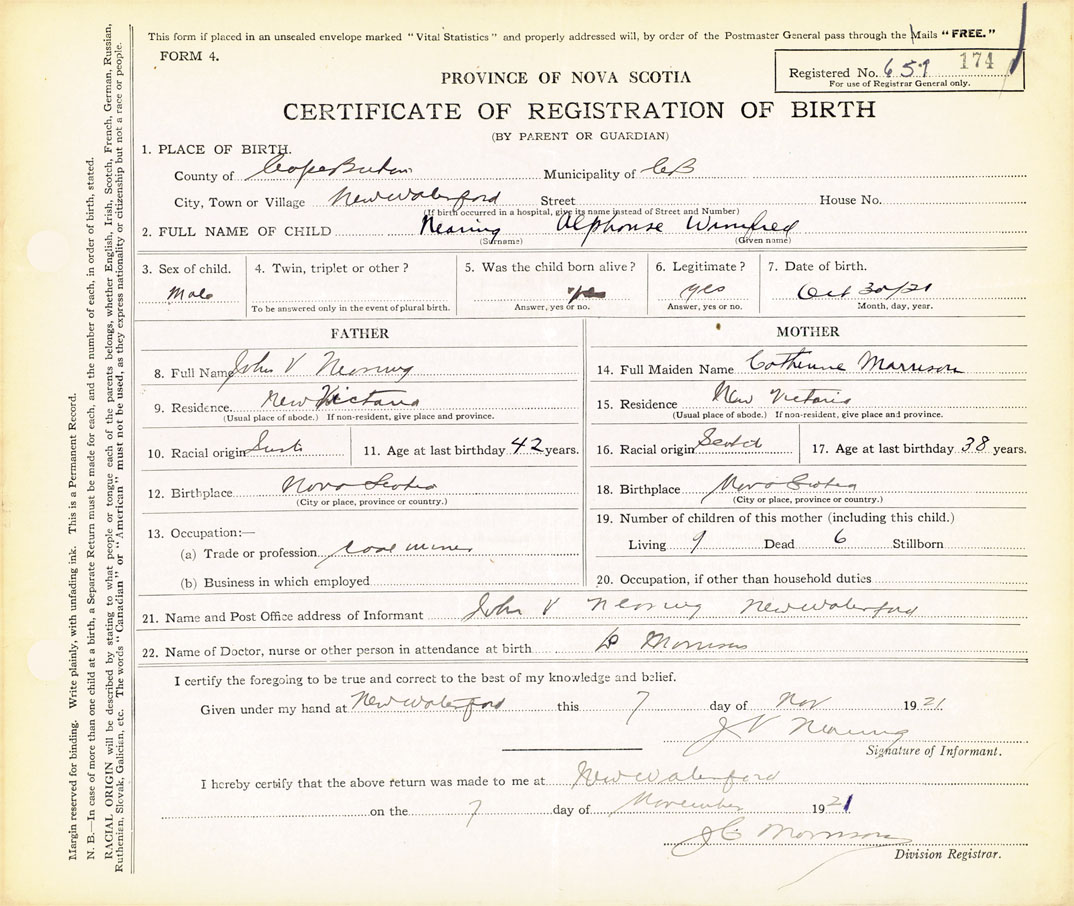 This form if placed in an unsealed envelope marked "Vital Statistics" and properly addressed will, by order of the Postmaster General pass through the Mails "FREE."
FORM 4.
Registered No. 659 174
For use of Registrar General only.
PROVINCE OF NOVA SCOTIA
CERTIFICATE OF REGISTRATION OF BIRTH
(BY PARENT OR GUARDIAN)
1. PLACE OF BIRTH.
County of Cape Breton Municipality of CB
City, Town or Village New Waterford Street House No.
(If birth occurred in a hospital, give its name instead of Street and Number)
2. FULL NAME OF CHILD Nearing Alphonse Winifred
(Surname) (Given name)
3. Sex of child. 4. Twin, triplet or other? 5. Was the child born alive? 6. Legitimate? 7. Date of birth.
Male yes yes Oct 30/21
To be answered only in the event of plural birth. Answer, yes or no. Answer, yes or no. Month, day, year.
FATHER
8. Full Name John V Nearing
9. Residence New Victoria
(Usual place of abode.) If non-resident, give place and province.
10. Racial origin 11. Age at last birthday 42 years.
12. Birthplace Nova Scotia
(City or place, province or country.)
13. Occupation:—
(a) Trade or profession coal miner
(b) Business in which employed
MOTHER
14. Full Maiden Name Catherine Morrison
15. Residence New Victoria
(Usual place of abode.) If non-resident, give place and province.
16. Racial origin Scotch 17. Age at last birthday 38 years.
18. Birthplace Nova Scotia
(City or place, province or country.)
19. Number of children of this mother (including this child.)
Living 9 Dead 6 Stillborn
20. Occupation, if other than household duties
21. Name and Post Office address of Informant John V Nearing New Waterford
22. Name of Doctor, nurse or other person in attendance at birth Dr Morrison
I certify the foregoing to be true and correct to the best of my knowledge and belief.
Given under my hand at New Waterford this 7 day of Nov 1921
J V Nearing
Signature of Informant.
I hereby certify that the above return was made to me at New Waterford
on the 7 day of November 1921
J C Morrison
Division Registrar.
Margin reserved for binding. Write plainly, with unfading ink. This is a Permanent Record.
N. B.—In case of more than one child at a birth, a Separate Return must be made for each, and the number of each, in order of birth, stated.
RACIAL ORIGIN will be described by stating to what people or tongue each of the parents belongs, whether English, Irish, Scotch, French, German, Russian,
Ruthenian, Slovak, Galician, etc. The words "Canadian" or "American" must not be used, as they express nationality or citizenship but not a race or people.